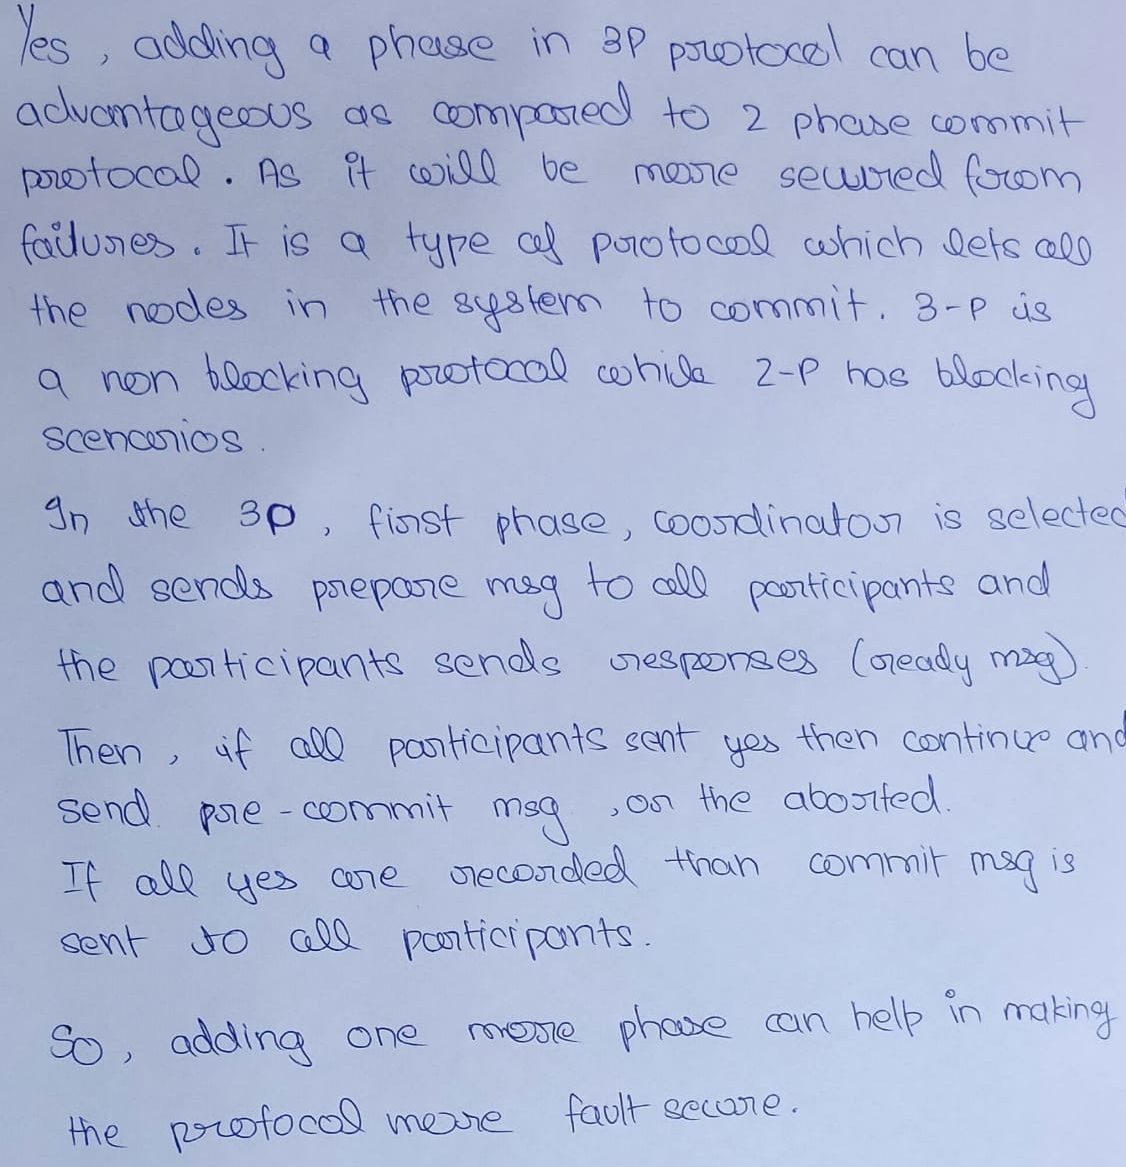 Yes, adding a phase in 3P protocol can be
advantageous as compared to 2 phase commit
protocal. As it will be more secured from
failures. It is a type of protocol which lets all
the nodes in the system to commit. 3-P is
a non blocking protocal while 2-P has blocking
scenarios.
In the 3P, first phase, coordinator is selected
and sends prepare msg to all participants and
the participants sends responses (ready msg).
Then, if all participants sent yes then continue and
send pre-commit msg, or the aborted.
If all yes are recorded than commit msg is
sent to all participants.
So, adding one more phase can help in making
the protocol more fault secure.